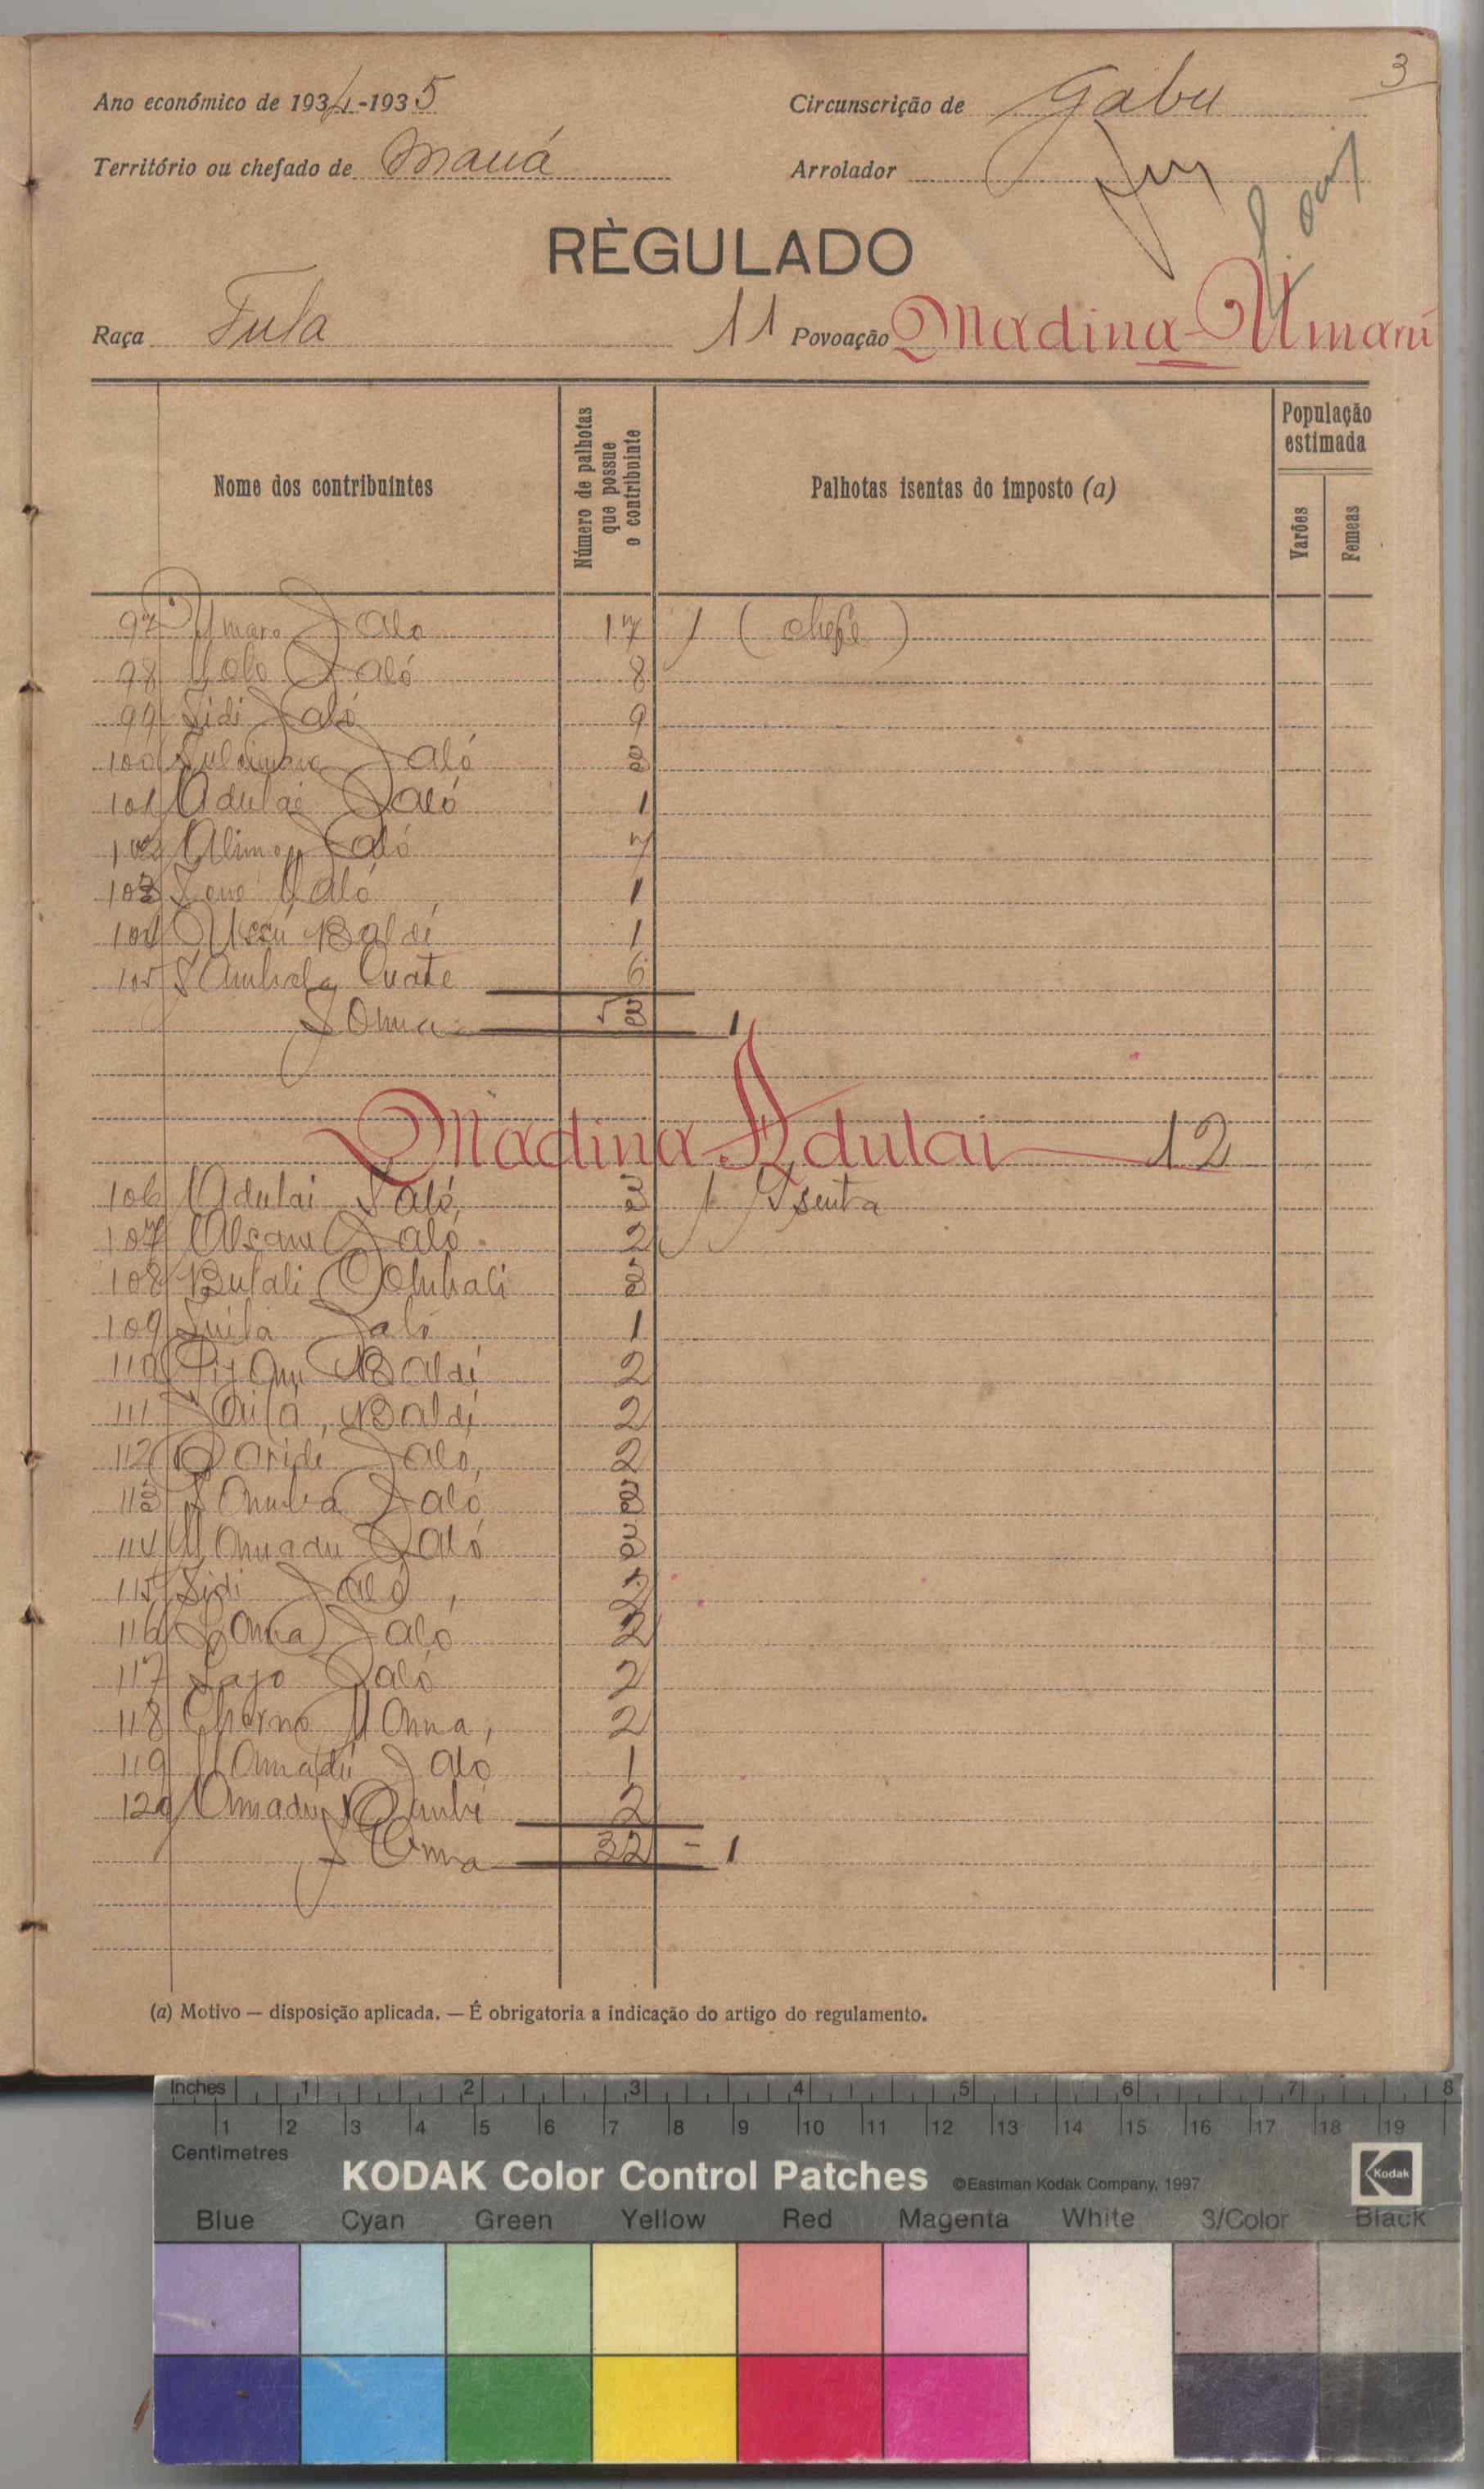 3
Ano económico de 1934-1935
Circunscrição de Gabu
Território ou chefado de Maná
Arrolador
RÈGULADO
Raça Fula
11 Povoação Madina-Umarú
Nome dos contribuintes
Número de palhotas que possue o contribuinte
Palhotas isentas do imposto (a)
População estimada
Varões
Femeas
97 Umaro Jalo 17 1 (chefe)
98 Iobo Jaló 8
99 Sidi Jaló 9
100 Jaló 3
101 Adulai Jaló 1
102 Alimo Jaló 7
103 Jaló 1
104 Ussú Baldé 1
105 6
Soma 53 1
Madina Adulai 12
106 Adulai Jaló 3 1 Isenta
107 Alsani Jaló 2
108 Butali 3
109 Jaló 1
110 Baldé 2
111 Saila Baldé 2
112 Jaló 2
113 Jaló 3
114 Mamadu Jaló 3
115 Sidi Jaló 2
116 Jaló 2
117 Sajo Jaló 2
118 Cherno 2
119 Mamadú Jaló 1
120 Amadu 2
Soma 32 - 1
(a) Motivo — disposição aplicada. — É obrigatoria a indicação do artigo do regulamento.
Inches 1 2 3 4 5 6 7 8
1 2 3 4 5 6 7 8 9 10 11 12 13 14 15 16 17 18 19
Centimetres
KODAK Color Control Patches ©Eastman Kodak Company, 1997 Kodak
Blue Cyan Green Yellow Red Magenta White 3/Color Black